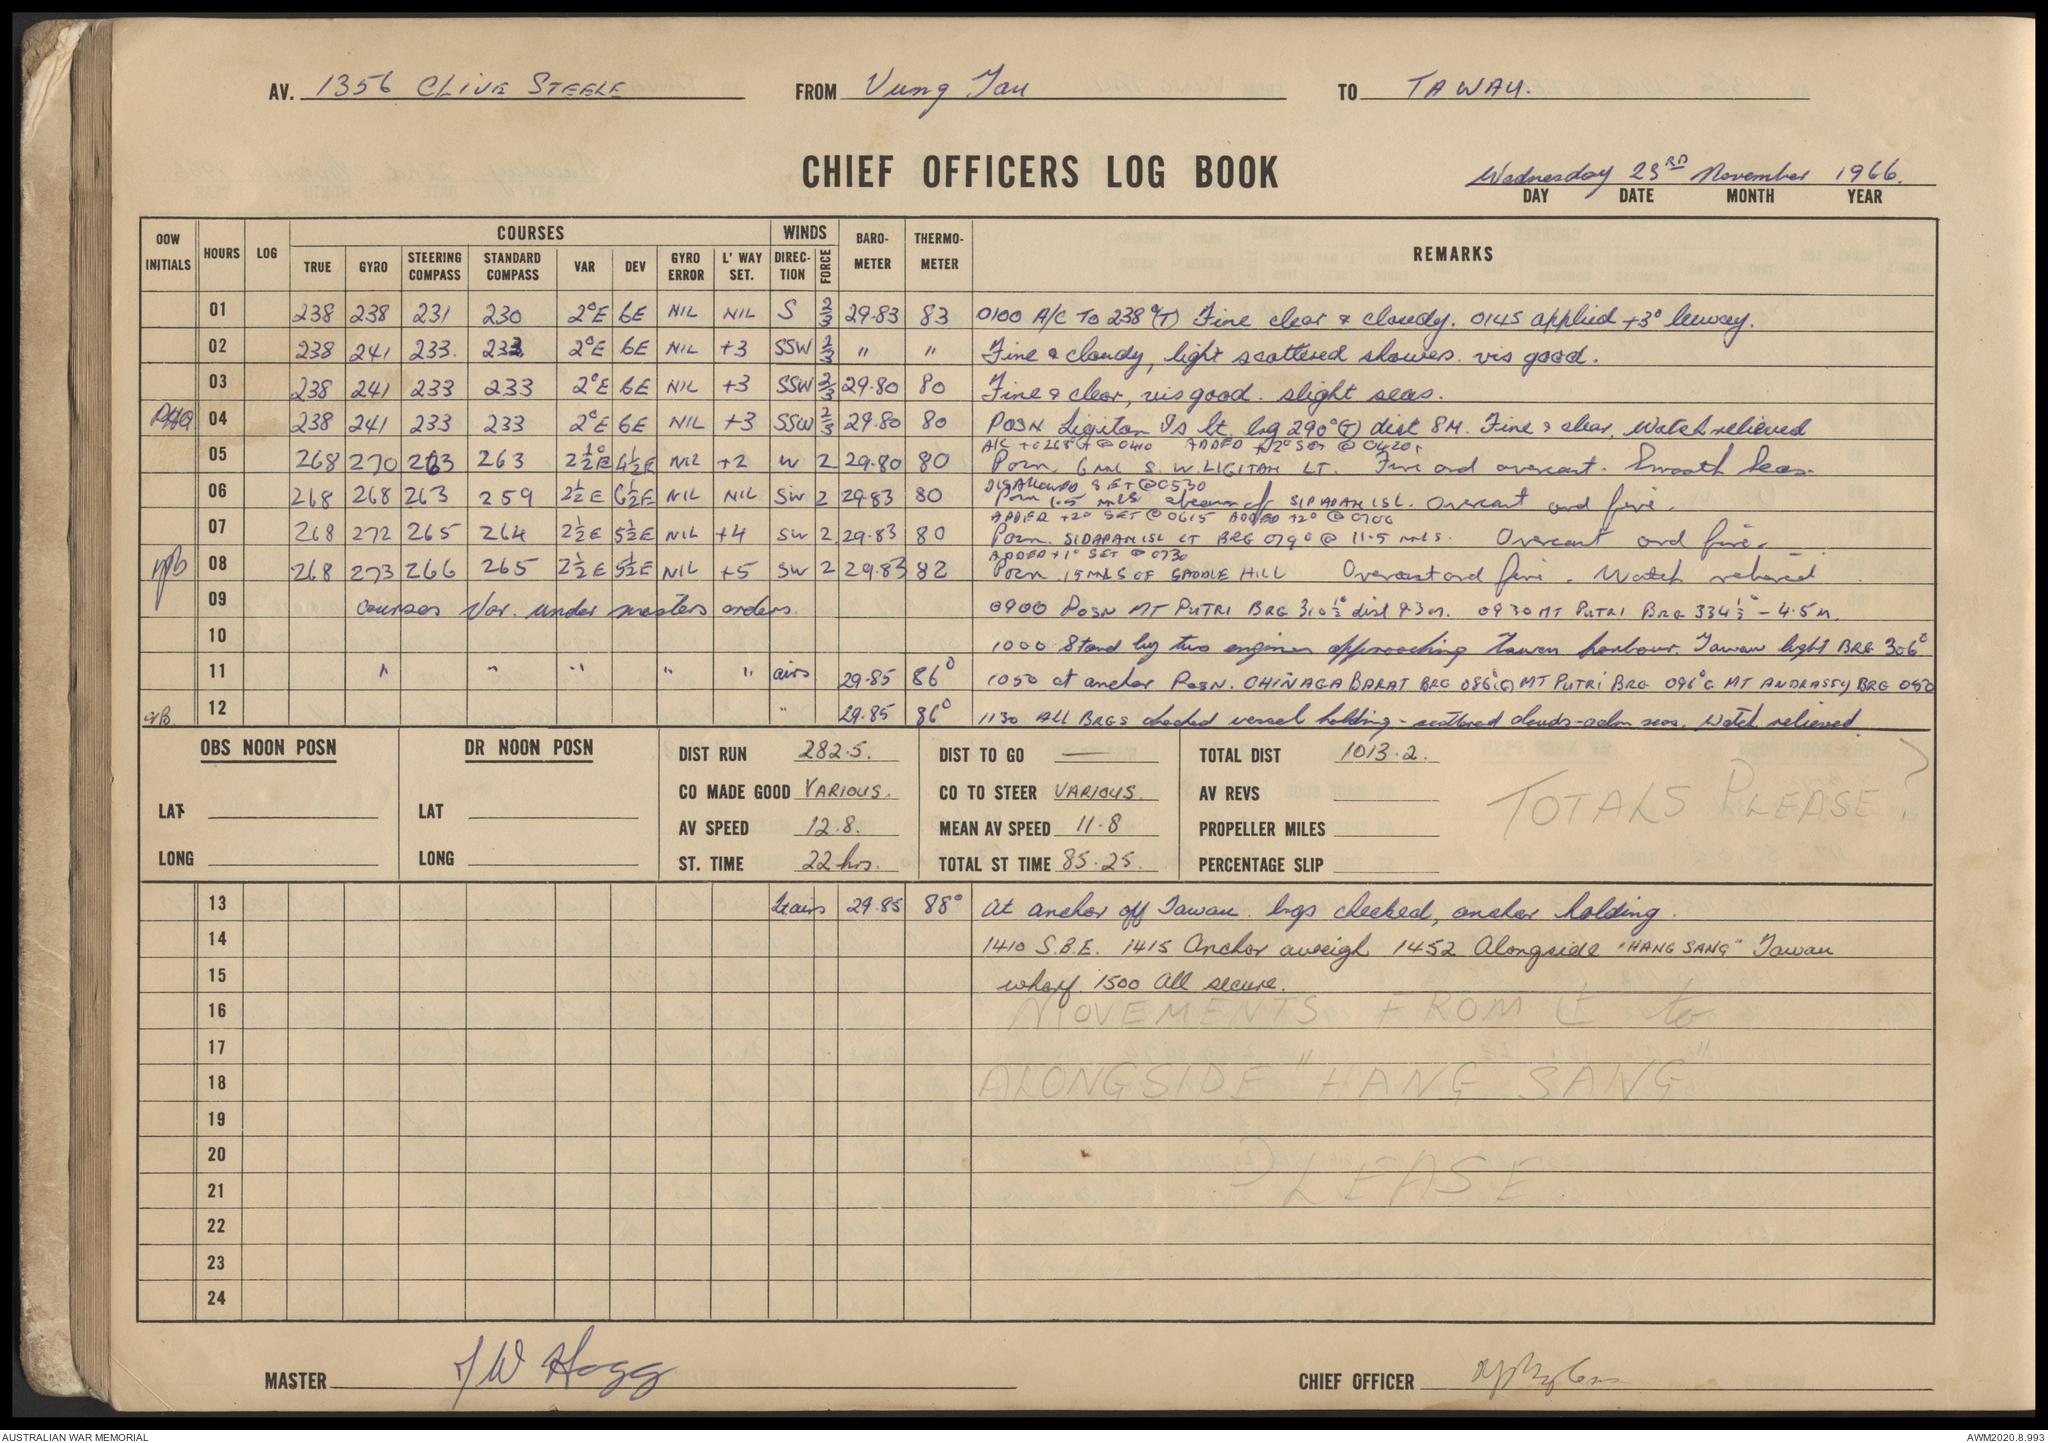 AV. 1356 CLIVE STEELE FROM Vung Tau TO TAWAU.
CHIEF OFFICERS LOG BOOK
Wednesday 23RD November 1966.
DAY DATE MONTH YEAR
OOW INITIALS HOURS LOG COURSES WINDS BARO-METER THERMO-METER REMARKS
TRUE GYRO STEERING COMPASS STANDARD COMPASS VAR DEV GYRO ERROR L' WAY SET. DIREC-TION FORCE
01 238 238 231 230 2°E 6E NIL NIL S 2/3 29.83 83 0100 A/C To 238°(T) Fine clear & cloudy. 0145 applied +3° leeway.
02 238 241 233. 233 2°E 6E NIL +3 SSW 2/3 " " Fine & cloudy, light scattered showers. vis good.
03 238 241 233 233 2°E 6E NIL +3 SSW 2/3 29.80 80 Fine & clear, vis good. slight seas.
04 238 241 233 233 2°E 6E NIL +3 SSW 2/3 29.80 80 POSN Ligitan Is Lt. brg 290°(T) dist 8M. Fine & clear. Watch relieved
A/C to 268°T @ 0410 ADDED +2° SET @ 0420.
05 268 270 263 263 2½°E 4½E NIL +2 W 2 29.80 80 Posn. 6 mls S.W. LIGITAN LT. Fine and overcast. Smooth Seas.
DISALLOWED SET @ 0530
06 268 268 263 259 2½E 6½E NIL NIL SW 2 29.83 80 Posn 1.5 mls abeam of SIPADAN ISL. Overcast and fine.
ADDED +2° SET @ 0615 ADDED +2° @ 0700
07 268 272 265 264 2½E 5½E NIL +4 SW 2 29.83 80 Posn. SIDAPAN ISL LT BRG 079° @ 11.5 mls. Overcast and fine.
ADDED +1° SET @ 0730
08 268 273 266 265 2½E 5½E NIL +5 SW 2 29.83 82 Posn 15 MLS OF SADDLE HILL Overcast and fine. Watch relieved
09 courses Var. under masters orders. 0900 POSN MT PUTRI BRG 310½° dist 9.3m. 0930 MT PUTRI BRG 334½° - 4.5 m.
10 1000 Stand by two engines approaching Tawau harbour. Tawau light BRG 306°
11 " " " " " airs 29.85 86° 1050 at anchor POSN. CHINAGA BARAT BRG 086°(G) MT PUTRI BRG 096°G MT ANDRASSY BRG 050
12 " 29.85 86° 1130 ALL BRGS checked vessel holding - scattered clouds - calm seas. Watch relieved.
OBS NOON POSN DR NOON POSN DIST RUN 282.5. DIST TO GO — TOTAL DIST 1013.2.
CO MADE GOOD VARIOUS. CO TO STEER VARIOUS. AV REVS
TOTALS PLEASE?
LAT LAT AV SPEED 12.8. MEAN AV SPEED 11.8 PROPELLER MILES
LONG LONG ST. TIME 22 hrs. TOTAL ST TIME 85.25. PERCENTAGE SLIP
13 Lt airs 29.85 88° At anchor off Tawau. brgs checked, anchor holding.
14 1410 S.B.E. 1415 Anchor aweigh 1452 Alongside "HANG SANG" Tawau
15 wharf. 1500 All secure.
16 MOVEMENTS FROM to
17
18 ALONGSIDE "HANG SANG"
19
20
21 PLEASE
22
23
24
MASTER W Hogg CHIEF OFFICER
AUSTRALIAN WAR MEMORIAL AWM2020.8.993